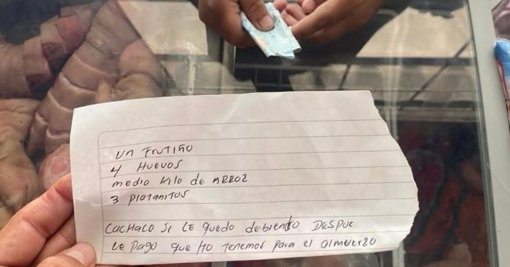 un Frutiño
4 Huevos
medio kilo de ARROZ
3 platanitos
Cachaco si le quedo debiendo Despue
Le pago que no tenemos para el almuerzo